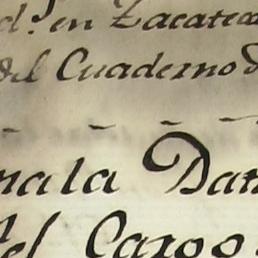 d.º en Zacateca
del Cuaderno d
mala Dan
del Cargo